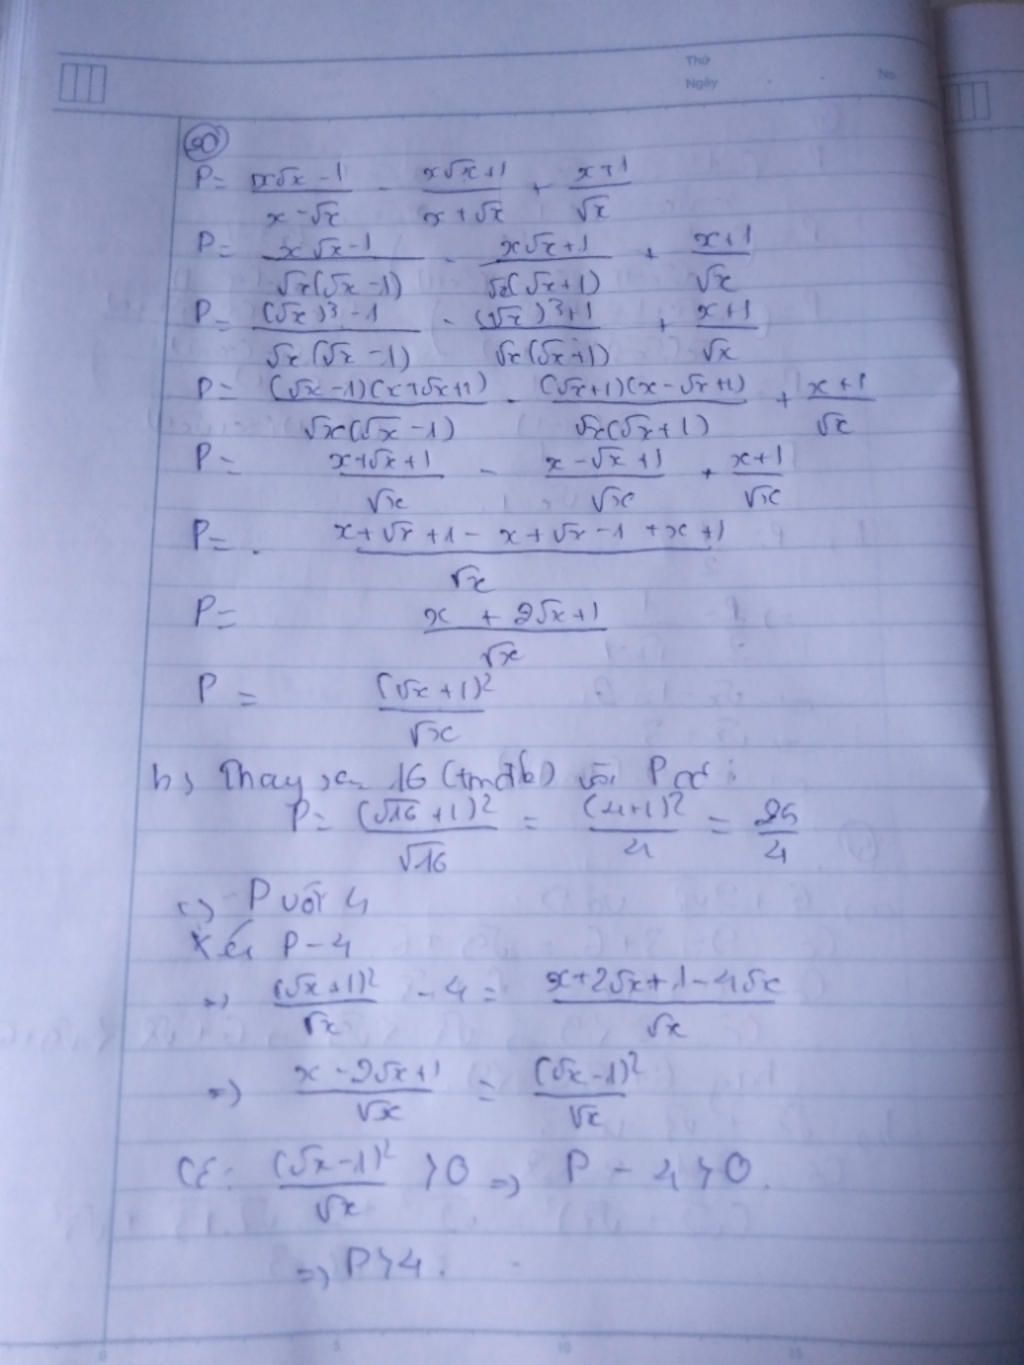 Thứ
Ngày No
50
P = (x√x - 1)/(x - √x) - (x√x + 1)/(x + √x) + (x + 1)/√x
P = (x√x - 1)/(√x(√x - 1)) - (x√x + 1)/(√x(√x + 1)) + (x + 1)/√x
P = ((√x)³ - 1)/(√x(√x - 1)) - ((√x)³ + 1)/(√x(√x + 1)) + (x + 1)/√x
P = ((√x - 1)(x + √x + 1))/(√x(√x - 1)) - ((√x + 1)(x - √x + 1))/(√x(√x + 1)) + (x + 1)/√x
P = (x + √x + 1)/√x - (x - √x + 1)/√x + (x + 1)/√x
P = (x + √x + 1 - x + √x - 1 + x + 1)/√x
P = (x + 2√x + 1)/√x
P = (√x + 1)²/√x
b) Thay x = 16 (tmđk) vào P có:
P = (√16 + 1)²/√16 = (4 + 1)²/4 = 25/4
c) P với 4
Xét P - 4
=> (√x + 1)²/√x - 4 = (x + 2√x + 1 - 4√x)/√x
=> (x - 2√x + 1)/√x = (√x - 1)²/√x
Có: (√x - 1)²/√x > 0 => P - 4 > 0.
=> P > 4.
0 5 10 15